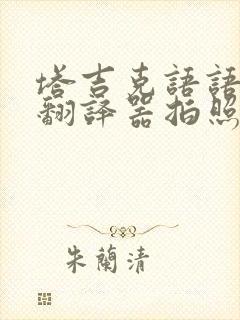 塔吉克語語
翻譯器拍照
朱蘭清